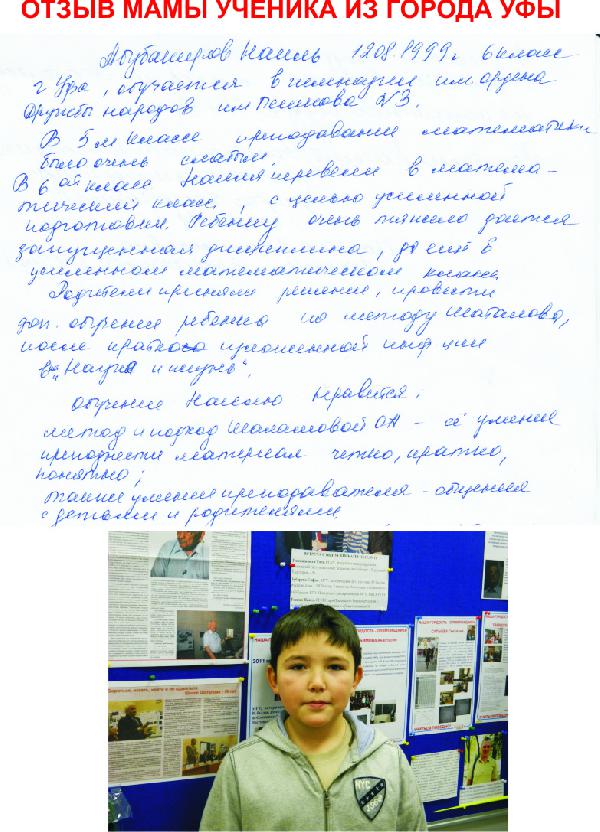 ОТЗЫВ МАМЫ УЧЕНИКА ИЗ ГОРОДА УФЫ
Абубакиров Наиль 12.08.1999г. 6 класс
г Уфа, обучается в гимназии им ордена
Дружбы народов им Пушкова №3.
В 5м классе преподавание математики
было очень слабым.
В 6ой класс Наиля перевели в матема-
тический класс, с целью усиленной
подготовки. Ребенку очень тяжело дается
запущенная дисциплина, да ещё в
усиленном математическом классе.
Родители приняли решение, провести
доп. обучение ребёнка по методу Шаталова,
после кратко изложенной инф ции
в "Наука и жизнь".
Обучение Наилю нравится.
метод и подход ОА – её умения
преподнести материал четко, кратко,
понятно;
также умения преподавателя - общения
с детьми и родителями